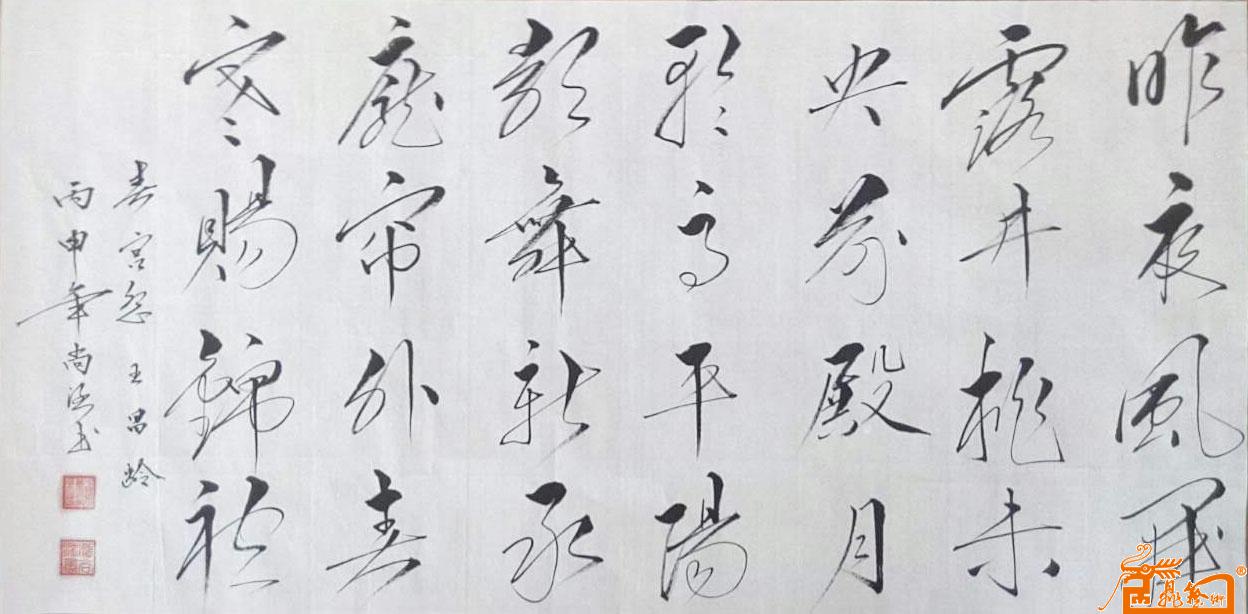 昨夜風開
露井桃未
央前殿月
輪高平陽
歌舞新承
寵帘外春
寒賜錦袍
春宮怨 王昌齡
丙申年尚书